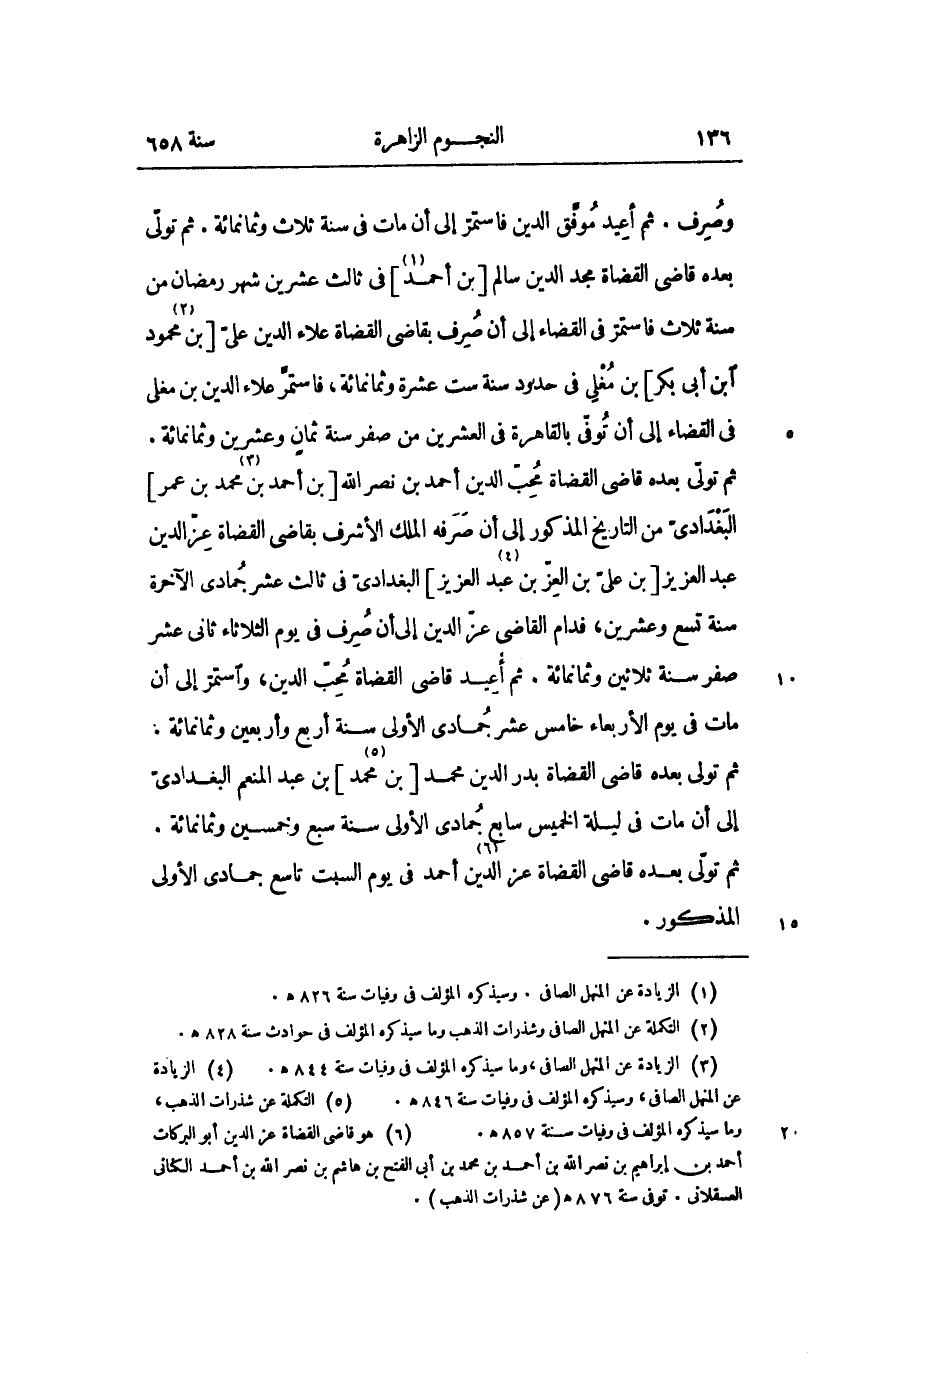 ١٣٦ النجوم الزاهرة سنة ٦٥٨
وصُرِف . ثم أُعيد مُوفّق الدين فاستمرّ إلى أن مات فى سنة ثلاث وثمانمائة . ثم تولّى
بعده قاضى القضاة مجد الدين سالم [بن أحمد](١) فى ثالث عشرين شهر رمضان من
سنة ثلاث فاستمرّ فى القضاء إلى أن صُرِف بقاضى القضاة علاء الدين علىّ [بن محمود(٢)
آبن أبى بكر] بن مُغْلِى فى حدود سنة ست عشرة وثمانمائة، فاستمرّ علاء الدين بن مغلى
فى القضاء إلى أن تُوفّى بالقاهرة فى العشرين من صفر سنة ثمانٍ وعشرين وثمانمائة . ٥
ثم تولّى بعده قاضى القضاة مُحِبّ الدين أحمد بن نصر الله [بن أحمد بن(٣) محمد بن عمر]
البَغْدَادىّ من التاريخ المذكور إلى أن صَرَفه الملك الأشرف بقاضى القضاة عِزّ الدين
عبد العزيز [بن علىّ بن العِزّ بن عبد(٤) العزيز] البغدادىّ فى ثالث عشر جُمادى الآخرة
سنة تسع وعشرين، فدام القاضى عزّ الدين إلى أن صُرِف فى يوم الثلاثاء ثانى عشر
صفر سنة ثلاثين وثمانمائة . ثم أُعِيد قاضى القضاة مُحِبّ الدين، وآستمرّ إلى أن ١٠
مات فى يوم الأربعاء خامس عشر جُمادى الأولى سنة أربع وأربعين وثمانمائة .
ثم تولى بعده قاضى القضاة بدر الدين محمد [بن محمد(٥)] بن عبد المنعم البغدادىّ
إلى أن مات فى ليلة الخميس سابع جُمادى الأولى سنة سبع وخمسين وثمانمائة .
ثم تولّى بعده قاضى القضاة عز الدين(٦) أحمد فى يوم السبت تاسع جمادى الأولى
المذكور . ١٥
(١) الزيادة عن المنهل الصافى . وسيذكره المؤلف فى وفيات سنة ٨٢٦ ه .
(٢) التكملة عن المنهل الصافى وشذرات الذهب وما سيذكره المؤلف فى حوادث سنة ٨٢٨ ه .
(٣) الزيادة عن المنهل الصافى، وما سيذكره المؤلف فى وفيات سنة ٨٤٤ ه . (٤) الزيادة
عن المنهل الصافى، وسيذكره المؤلف فى وفيات سنة ٨٤٦ ه . (٥) التكملة عن شذرات الذهب،
وما سيذكره المؤلف فى وفيات سنة ٨٥٧ ه . (٦) هو قاضى القضاة عز الدين أبو البركات ٢٠
أحمد بن إبراهيم بن نصر الله بن أحمد بن محمد بن أبى الفتح بن هاشم بن نصر الله بن أحمد الكنانى
العسقلانى . توفى سنة ٨٧٦ ه (عن شذرات الذهب) .